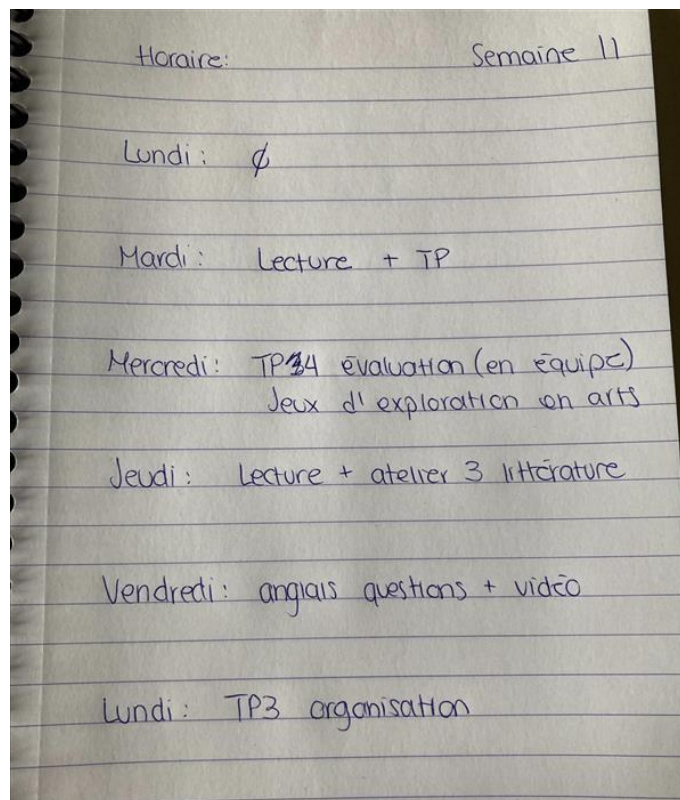 Horaire: Semaine 11
Lundi: ∅
Mardi: Lecture + TP
Mercredi: TP4 évaluation (en équipe)
Jeux d'exploration en arts
Jeudi: Lecture + atelier 3 littérature
Vendredi: anglais questions + vidéo
Lundi: TP3 organisation